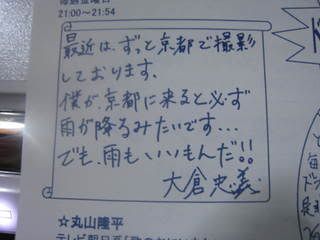 毎週金曜日
21:00~21:54
最近は、ずっと京都で撮影
しております。
僕が、京都に来ると必ず
雨が降るみたいです…
でも、雨もいいもんだ!!
大倉忠義
☆丸山隆平